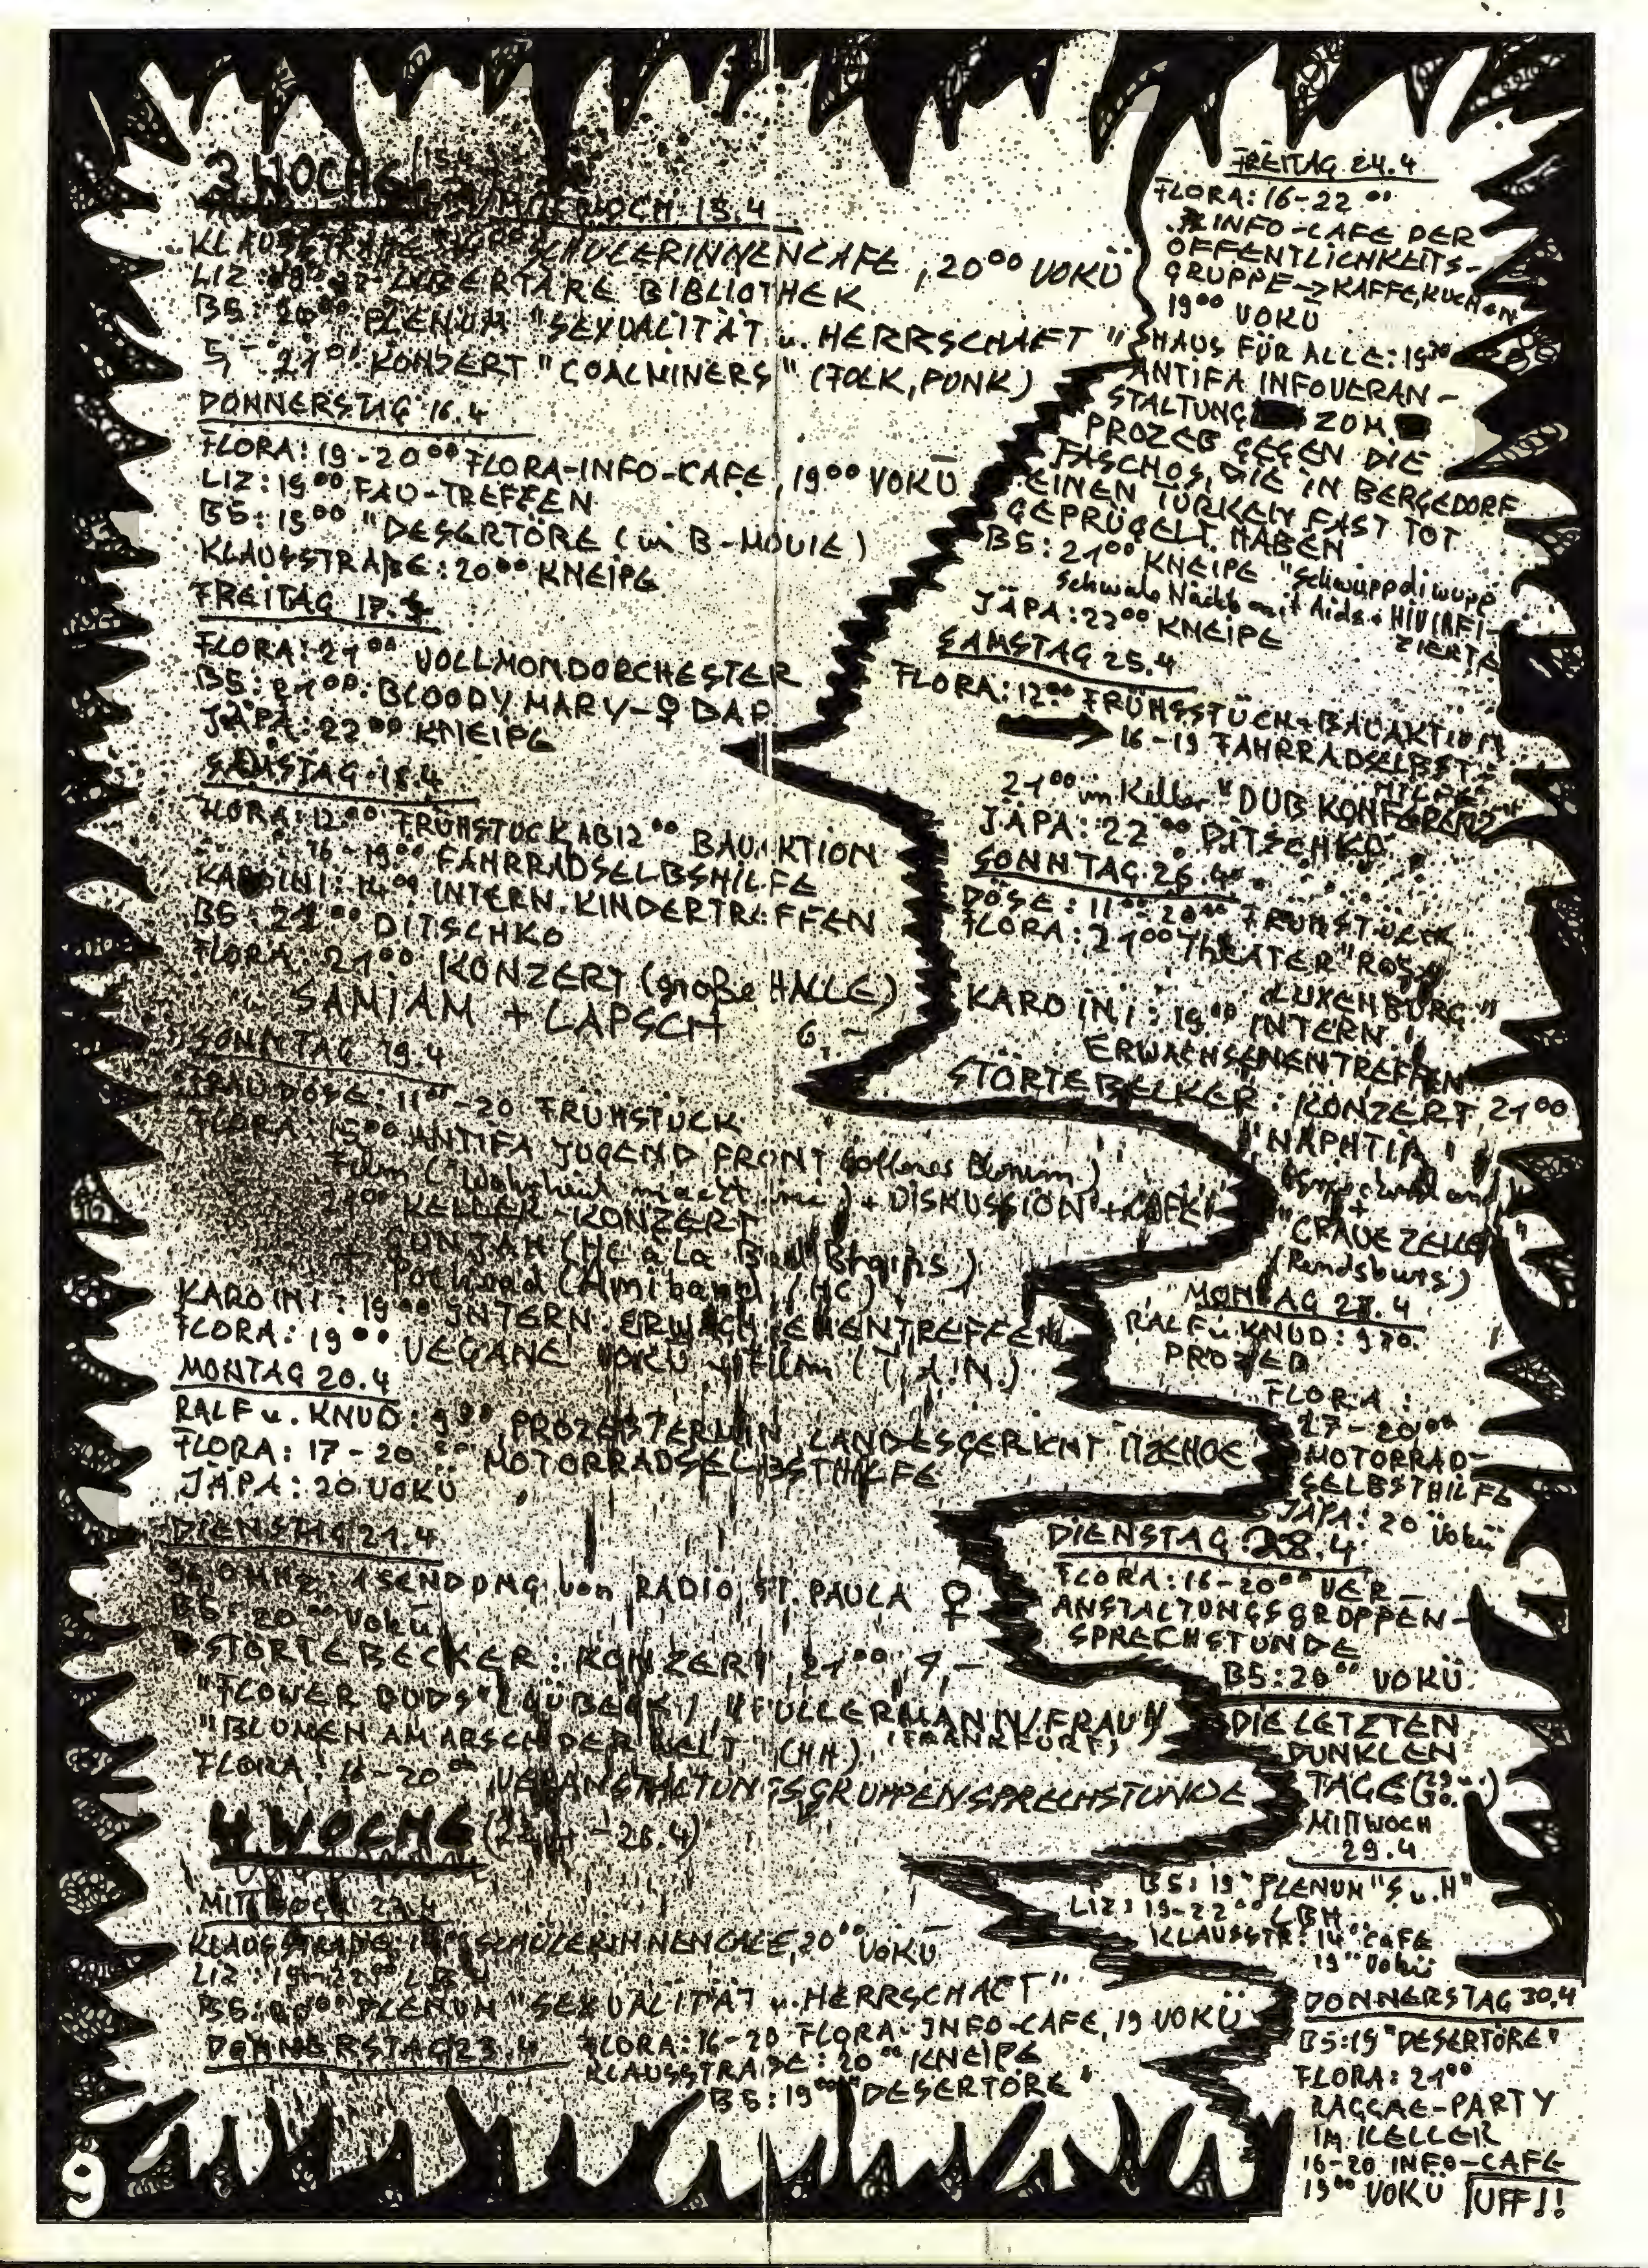 3 WOCHE
MITTWOCH: 15.4
KLAUSSTRAßE SCHÜLERINNENCAFE, 20⁰⁰ VOKÜ
LIZ: LIBERTÄRE BIBLIOTHEK
B5: 20⁰⁰ PLENUM "SEXUALITÄT u. HERRSCHAFT"
5,- 21⁰⁰ KONZERT "COALMINERS" (FOLK, PUNK)
DONNERSTAG 16.4
FLORA: 19-20⁰⁰ FLORA-INFO-CAFE, 19⁰⁰ VOKÜ
LIZ: 19⁰⁰ FAU-TREFFEN
B5: 19⁰⁰ "DESERTÖRE (im B-MOVIE)
KLAUSSTRAßE: 20⁰⁰ KNEIPE
FREITAG 17.4
FLORA: 21⁰⁰ VOLLMONDORCHESTER
B5: 21⁰⁰: BLOODY MARY-♀ BAR
JÄPA: 22⁰⁰ KNEIPE
SAMSTAG 18.4
FLORA: 12⁰⁰ FRÜHSTÜCK AB 12⁰⁰ BAUAKTION
16-19⁰⁰ FAHRRADSELBSHILFE
KAROINI: 14⁰⁰ INTERN. KINDERTREFFEN
B5: 21⁰⁰ DITSCHKO
FLORA: 21⁰⁰ KONZERT (große HALLE)
SAMIAM + LAPSCH 6,-
SONNTAG 19.4
FRAU DÖSE: 11⁰⁰-20 FRÜHSTÜCK
FLORA: 15⁰⁰ ANTIFA JUGEND FRONT (offenes Plenum)
Film ("Wahrheit macht frei") + DISKUSSION + CAFE
21⁰⁰ KELLER-KONZERT
GUNJAH (HC à la Bad Brains)
+ Pothead (Amiband / HC)
KAROINI: 19⁰⁰ INTERN. ERWACHSENENTREFFEN
FLORA: 19⁰⁰ VEGANE VOKÜ + Film
MONTAG 20.4
RALF u. KNUD: 9³⁰ PROZEßTERMIN LANDESGERICHT ITZEHOE
FLORA: 17-20⁰⁰ MOTORRADSELBSTHILFE
JÄPA: 20 VOKÜ
DIENSTAG 21.4
MHz: 1 SENDUNG von RADIO ST. PAULA ♀
B5: 20⁰⁰ Vokü
STÖRTEBECKER: KONZERT 21⁰⁰
"FLOWER BUDS" (LÜBECK) "FÜLLERMANN/FRAU"
"BLUMEN AM ARSCH DER WELT" (HH) (FRANKFURT)
FLORA: 16-20⁰⁰ VERANSTALTUNGSGRUPPENSPRECHSTUNDE
4 WOCHE (22.4-28.4)
MITTWOCH 22.4
KLAUSSTRAßE: SCHÜLERINNENCAFE, 20⁰⁰ VOKÜ
LIZ: 19-22⁰⁰ LBH
B5: 20⁰⁰ PLENUM "SEXUALITÄT u. HERRSCHAFT"
DONNERSTAG 23.4 FLORA: 16-20 FLORA-INFO-CAFE, 19 VOKÜ
KLAUSSTRAßE: 20⁰⁰ KNEIPE
B5: 19⁰⁰ "DESERTÖRE"
9
FREITAG 24.4
FLORA: 16-22⁰⁰
INFO-CAFE DER
ÖFFENTLICHKEITS-
GRUPPE → KAFFE, KUCHEN
19⁰⁰ VOKÜ
HAUS FÜR ALLE: 19³⁰
ANTIFA INFOVERAN-
STALTUNG ZUM
PROZEß GEGEN DIE
FASCHOS, DIE IN BERGEDORF
EINEN TÜRKEN FAST TOT
GEPRÜGELT HABEN
B5: 21⁰⁰ KNEIPE "Schwuppdiwupp
Schwule Nacht mit Aids + HIV INFI-
ZIERTE
JÄPA: 22⁰⁰ KNEIPE
SAMSTAG 25.4
FLORA: 12⁰⁰ FRÜHSSTÜCH + BAUAKTION
16-19 FAHRRADSELBST-
HILFE
21⁰⁰ im Keller "DUB KONFERENZ"
JÄPA: 22⁰⁰ DITSCHKO
SONNTAG 26.4
DÖSE: 11⁰⁰-20⁰⁰ FRÜHSTÜCK
FLORA: 21⁰⁰ THEATER "ROSA
LUXEMBURG"
KAROINI: 19⁰⁰ INTERN.
ERWACHSENENTREFFEN
STÖRTEBECKER: KONZERT 21⁰⁰
"NAPHTIA"
+
"GRAUE ZELLEN"
(Rendsburg)
MONTAG 27.4
RALF u. KNUD: 9³⁰
PROZEß
FLORA:
17-20⁰⁰
MOTORRAD-
SELBSTHILFE
JÄPA: 20 Vokü
DIENSTAG 28.4
FLORA: 16-20⁰⁰ VER-
ANSTALTUNGSGRUPPEN-
SPRECHSTUNDE
B5: 20⁰⁰ VOKÜ
DIE LETZTEN
DUNKLEN
TAGE (29 u. 30.)
MITTWOCH
29.4
B5: 19⁰⁰ PLENUM "S u. H"
LIZ: 19-22⁰⁰ LBH
KLAUSSTR: 14⁰⁰ CAFE
19⁰⁰ Vokü
DONNERSTAG 30.4
B5: 19⁰⁰ "DESERTÖRE"
FLORA: 21⁰⁰
RAGGAE-PARTY
IM KELLER
16-20 INFO-CAFE
19⁰⁰ VOKÜ UFF!!